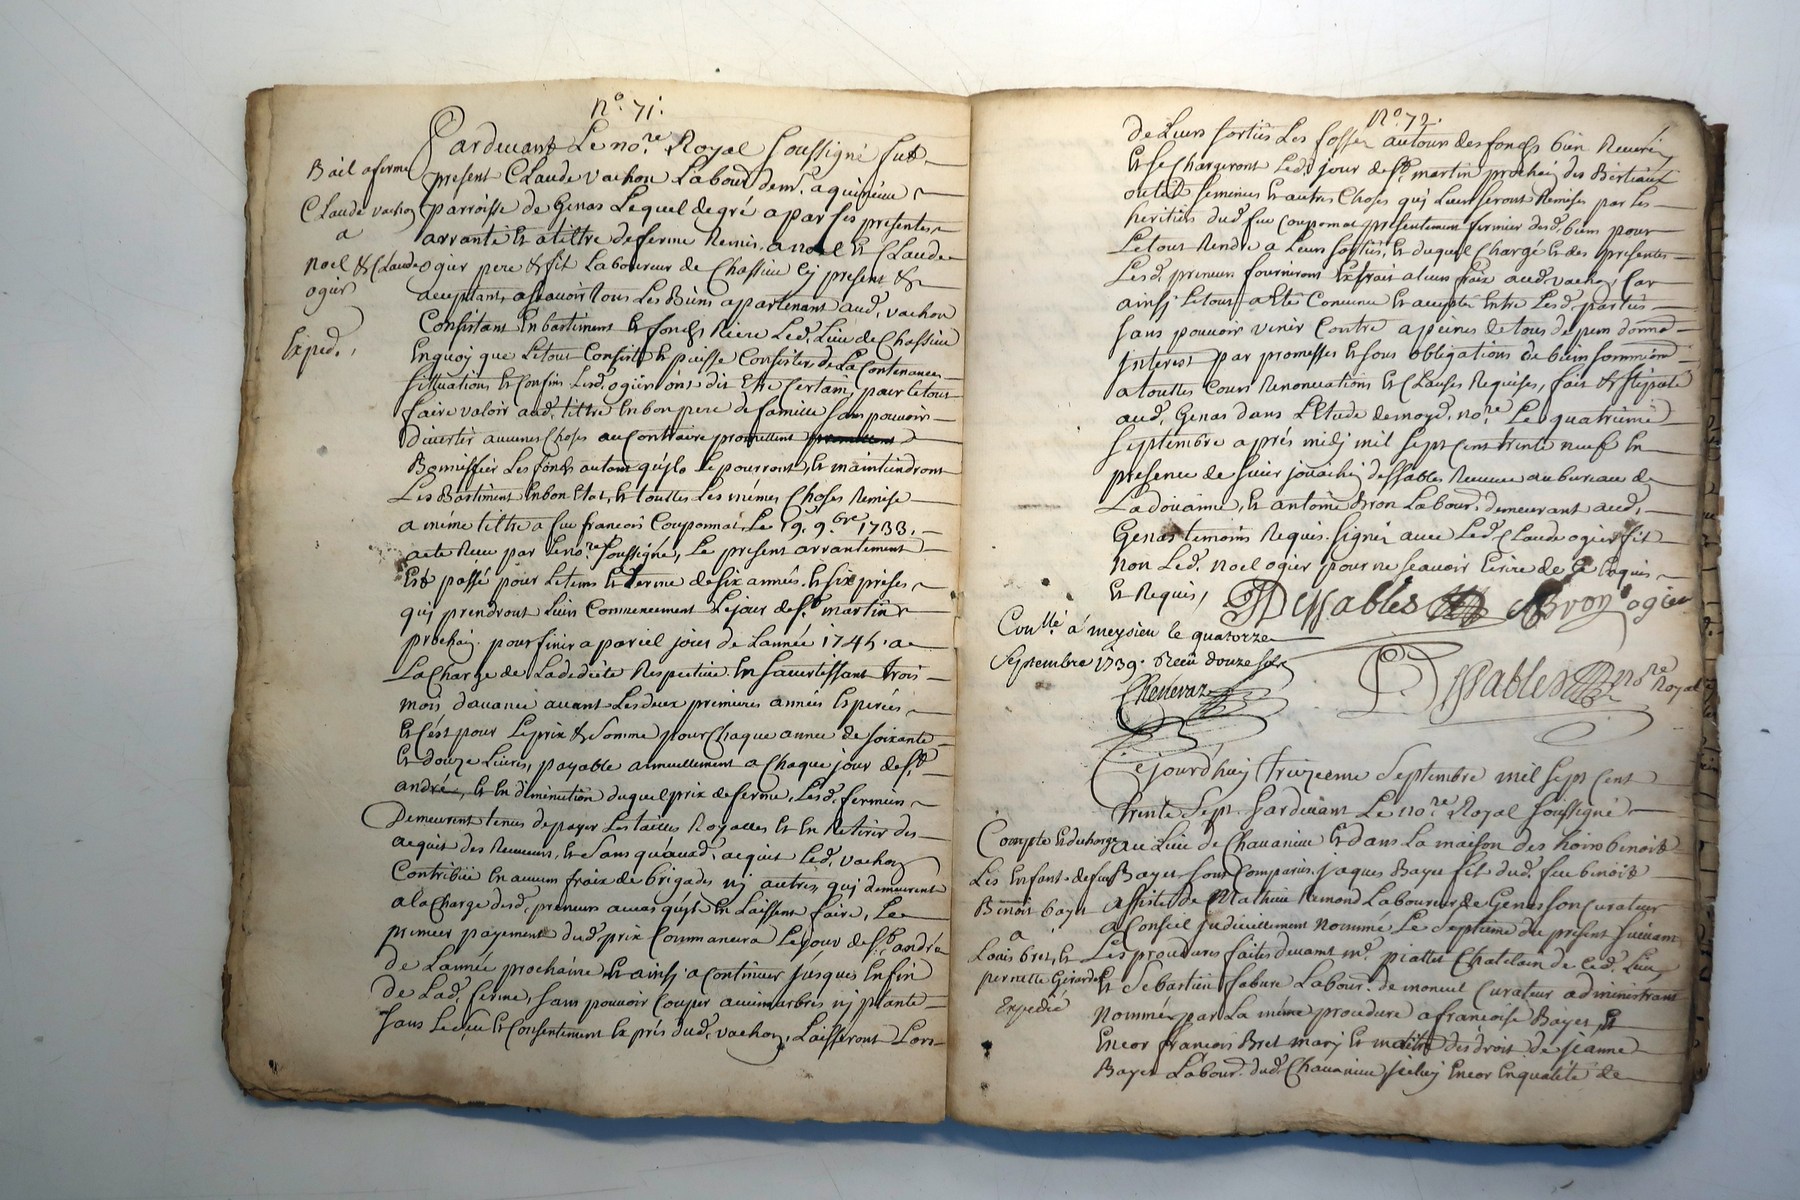 N.° 71.
Pardevant Le no.re Royal soussigné fut
Bail a ferme
Claude vachon
a
noel & Claude
ogier
Exped.
present Claude vachon Labour demt. a quincieu
parroisse de Genas Lequel degré a par ses presentes
arranté Et a tittre deferme Remis a noel Et Claude
ogier pere & fit Laboureur de Chassieu icy present &
acceptants, ascavoir tous Les Biens appartenant aud. vachon
Consistant En bastiment Et fonds Riere Led. Lieu de Chassieu
Enquoy que Letout Consiste Et puisse Consister, de La Contenance
Sittuation, Et Confins Lesd. ogier ont dit Etre Certain, pour Letout
faire valoir aud. tittre En bon pere de famille sans pouvoir
divertir aucunes Choses au Contraire promettent
Bonniffier Les fonds autant qu'ils Le pourront, Et maintiendront
Les Bastiment En bon Etat, Et touttes Les mémes Choses Remise
a méme tittre a feu francois Couponnat, Le 19. 9.bre 1733.
acte Receu par Le no.re soussigné, Le present arrantement
Est passé pour Letems Et terme de six années Et six prises
quy prendront Leurs Commencement Le jour de St. martin
prochain pour finir a pareil jours de L'année 1745. a
La Charge de Ladedicte Respective En s'avertissant trois
mois d'avance avant Les deux premieres années Expirées
Et C'est pour Le prix & Somme pour Chaque année de soixante
Et douze Livres, payable annuellement a Chaque jour de St.
andré, Et En diminution duquel prix de ferme, Lesd. fermiers
Demeurent tenus de payer Les tailles Royalles Et En Retirer des
acquit des Receveurs, Et Sans qu'aud. acquit Led. vachon
Contribüe En aucun fraix de brigades ny autres quy demeurent
a la Charge desd. preneurs au cas qu'ils En Laissent faire, Le
premier payement dud. prix Commancera Le jour de St. andré
de L'année prochaine Et ainsy a Continuer jusques Enfin
de Lad. ferme, sans pouvoir Couper aucun arbres ny plante
sans Le sceu Et Consentement Exprés dud. vachon, Laisseront Lors
N.° 72.
de Leurs sorties Les fossés autour des fonds bien Recurés
Et se Chargeront Led. jour de St. martin prochain des Bestiaux
outils semences Et autres Choses quy Leur seront Remises par Les
heritiers dud. feu Couponnat presentement fermier desd. biens pour
Letout Rendre a Leurs sorties, Et duquel Chargé Et des presentes
Lesd. preneurs fourniront Extrait a Leurs fraix aud. vachon, Car
ainsy Letout a Eté Convenu Et accepté Entre Lesd. parties
sans pouvoir venir Contre a peines de tous depens domma
Interest par promesses Et sous obligations de biens soumission
a touttes Cours Renonciations Et Clauses Requises, fait & stipulé
aud. Genas dans L'Etude de moyd. no.re Le quatrieme
Septembre aprés midy mil sept Cent trente neuf En
presence de sieur jouachin dessables Receveur au bureau de
La doüanne, Et antoine Bron Labour. demeurant aud.
Genas temoins Requis signés avec Led. Claude ogier fit
non Led. noel ogier pour ne sçavoir Ecrire de Ce Enquis
Et Requis,
Dessables Bron ogier
Conllé a meysieu le quatorze
Septembre 1739. Receü douze sols
Chenevaz
Dessables no.re Royal
Cejourd'huy treizieme Septembre mil sept Cent
trente sept. Pardevant Le no.re Royal soussigné
Compte Et decharge
Les Enfants de feu
Benoit bayet
a
Louis bret, Et
pernette Girardet
Expedié
au Lieu de Chavanieu Et dans La maison des hoirs benoit
Bayet sont Comparus jaques Bayet fit dud. feu benoit
assisté de Mathieu Remond Laboureur de Genas son Curateur
a Conseil judiciellement nommé Le septieme du present suivant
Les procedures faites devant mr. piattet Chatelain de Ced. Lieu
Et Sebastien fabure Labour. de monuel Curateur administrant
nommé par La méme procedure a francoise Bayet, Et
Encor francois Bret mary Et maitre des droit de jeanne
Bayet Labour. dud. Chavanieu Encor En qualité de